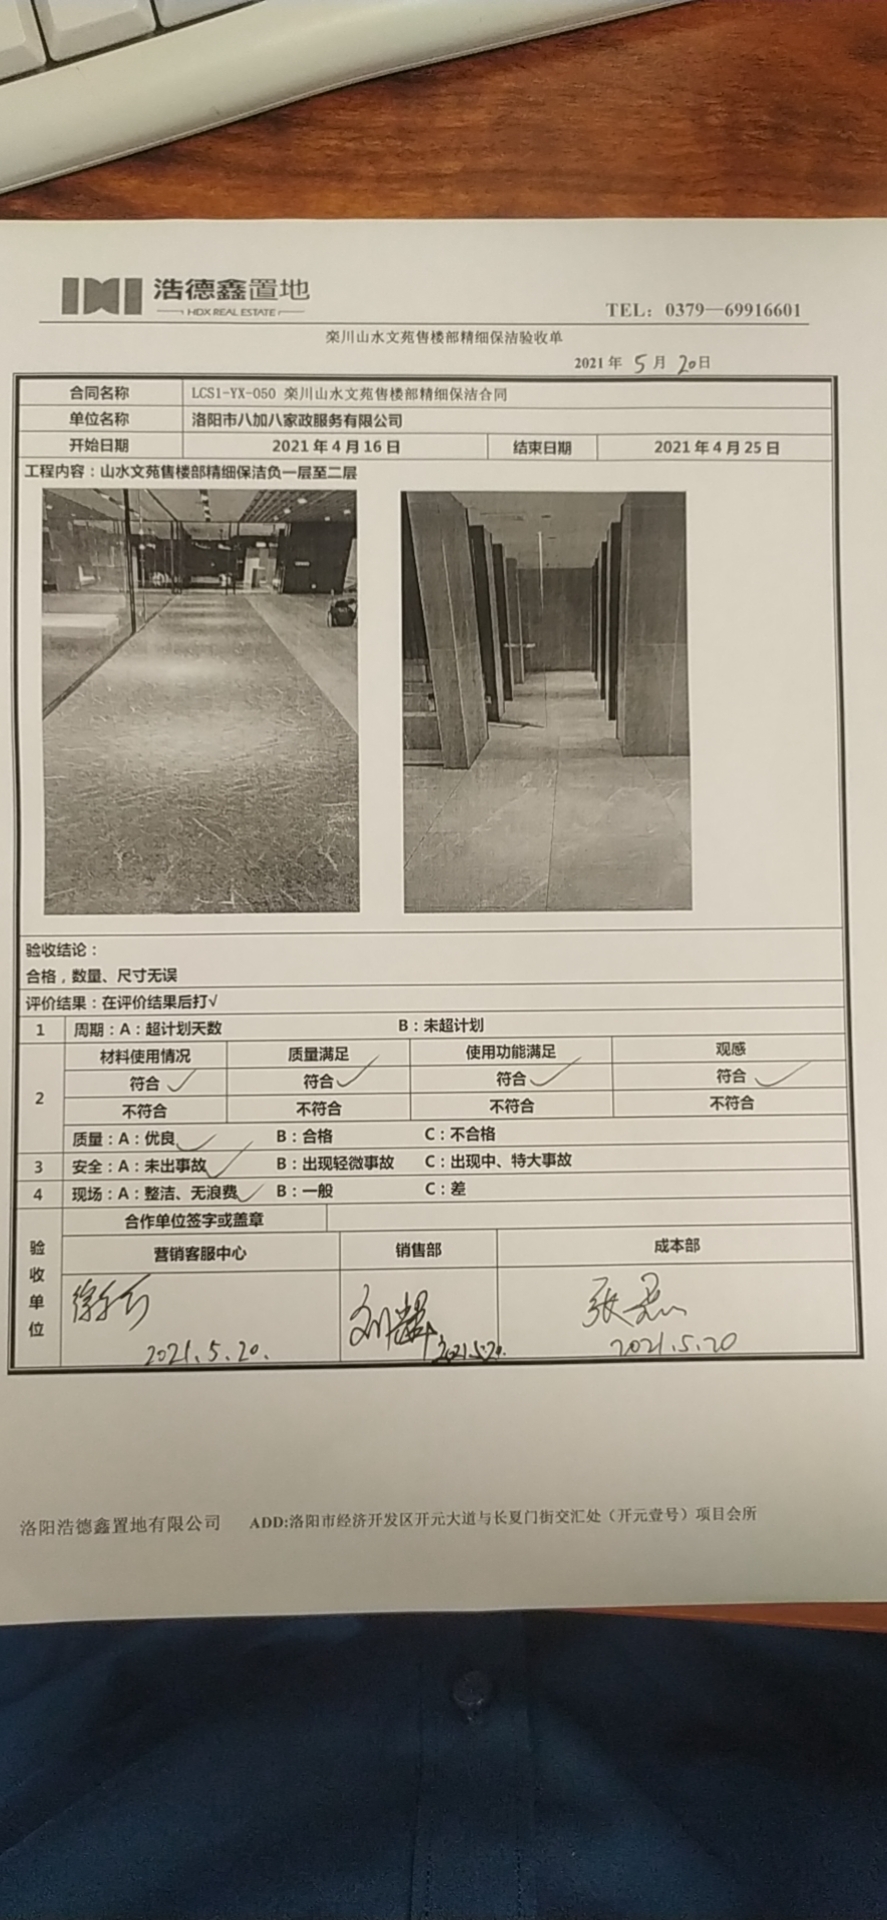 浩德鑫置地
HDX REAL ESTATE
TEL：0379—69916601
栾川山水文苑售楼部精细保洁验收单
2021 年 5 月 20日
合同名称 LCS1-YX-050 栾川山水文苑售楼部精细保洁合同
单位名称 洛阳市八加八家政服务有限公司
开始日期 2021 年 4 月 16 日 结束日期 2021 年 4 月 25 日
工程内容：山水文苑售楼部精细保洁负一层至二层
验收结论：
合格，数量、尺寸无误
评价结果：在评价结果后打√
1 周期：A：超计划天数 B：未超计划
材料使用情况 质量满足 使用功能满足 观感
2 符合 √ 符合 √ 符合 √ 符合 √
不符合 不符合 不符合 不符合
质量：A：优良 √ B：合格 C：不合格
3 安全：A：未出事故 √ B：出现轻微事故 C：出现中、特大事故
4 现场：A：整洁、无浪费 √ B：一般 C：差
合作单位签字或盖章
验收单位 营销客服中心 销售部 成本部
2021.5.20. 2021.5.20. 2021.5.20
洛阳浩德鑫置地有限公司 ADD:洛阳市经济开发区开元大道与长夏门街交汇处（开元壹号）项目会所